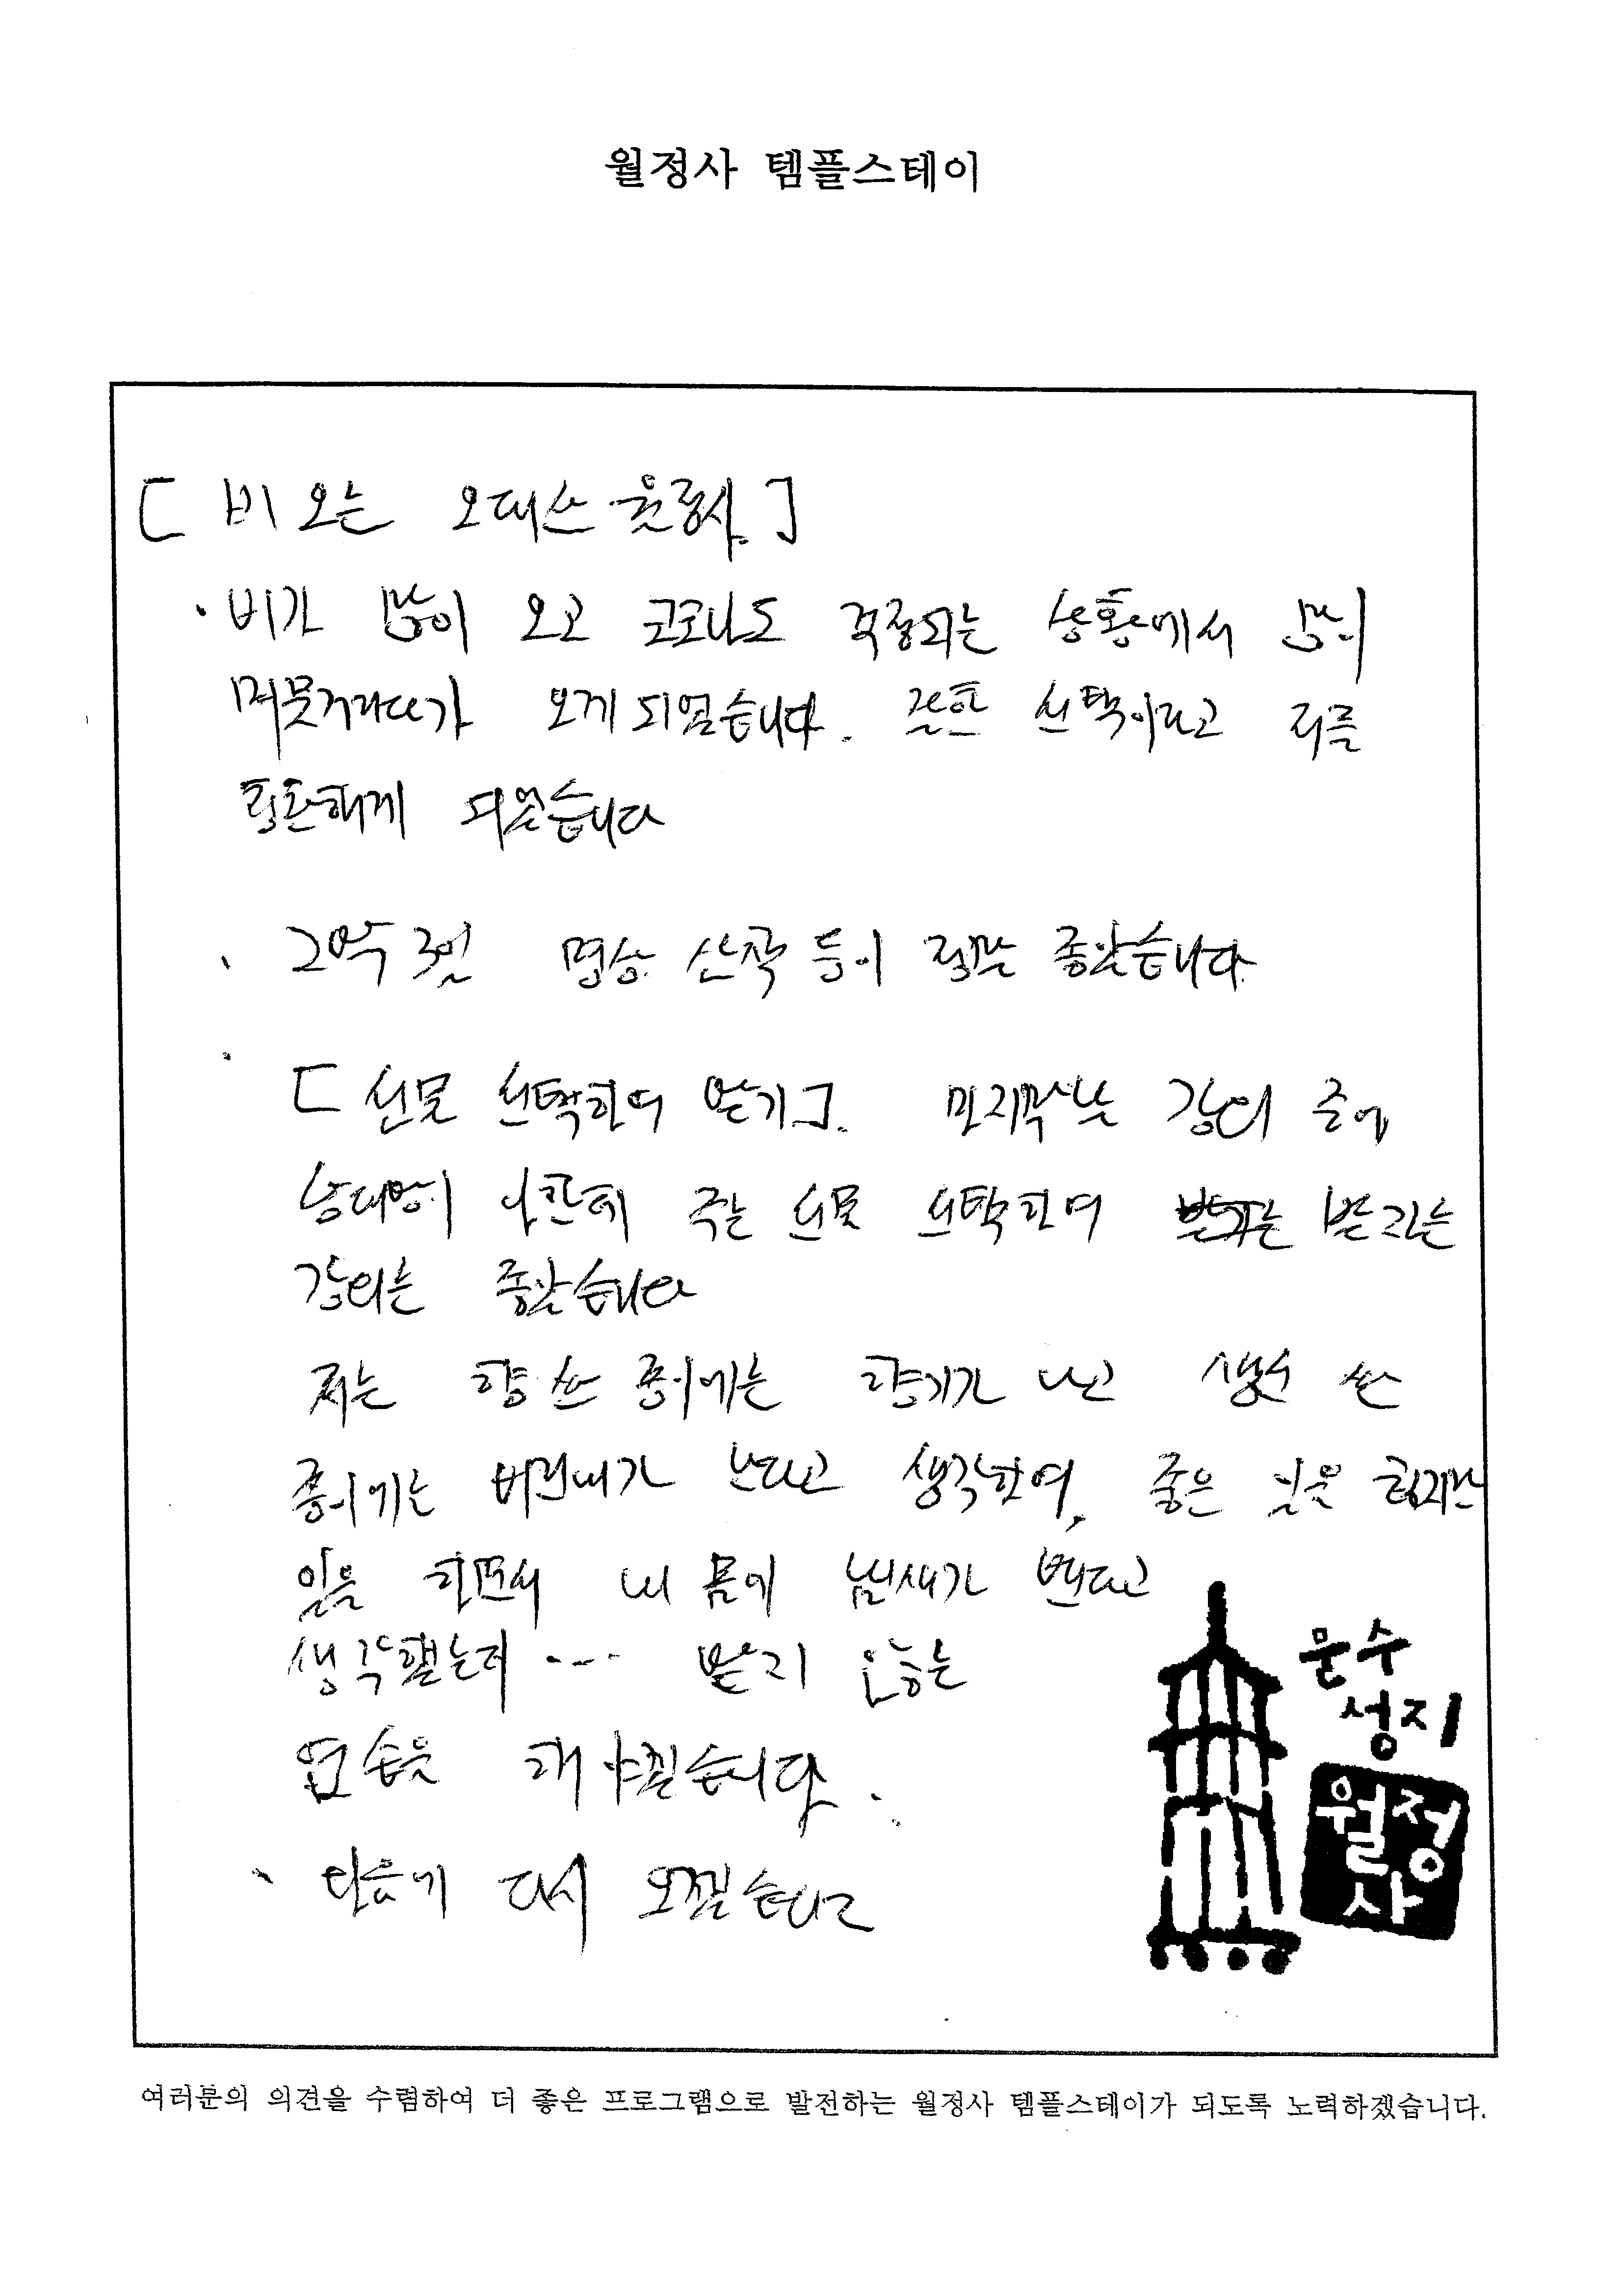 월정사 템플스테이
[ 비 오는 오대산 월정사. ]
· 비가 많이 오고 코로나도 걱정되는 상황에서 많이
머뭇거리다가 오게 되었습니다. 잘한 선택이라고
하게 되었습니다
명상 산책 등이 정말 좋았습니다
[ 선물 선택하여 받기 ]. 마지막날 강의 중에
상대방이 나한테 주는 선물 선택하여 받으라는
강의는 좋았습니다
저는 향 싼 종이에는 향기가 나고 생선 싼
종이에는 비린내가 난다고 생각하여, 좋은 일을 힘겨운
일을 하면서 내 몸에 냄새가 밴다고
생각했는데 --- 받지 않는
연습을 해야겠습니다.
다음에 다시 오겠습니다
문수
성지
월정
사
여러분의 의견을 수렴하여 더 좋은 프로그램으로 발전하는 월정사 템플스테이가 되도록 노력하겠습니다.